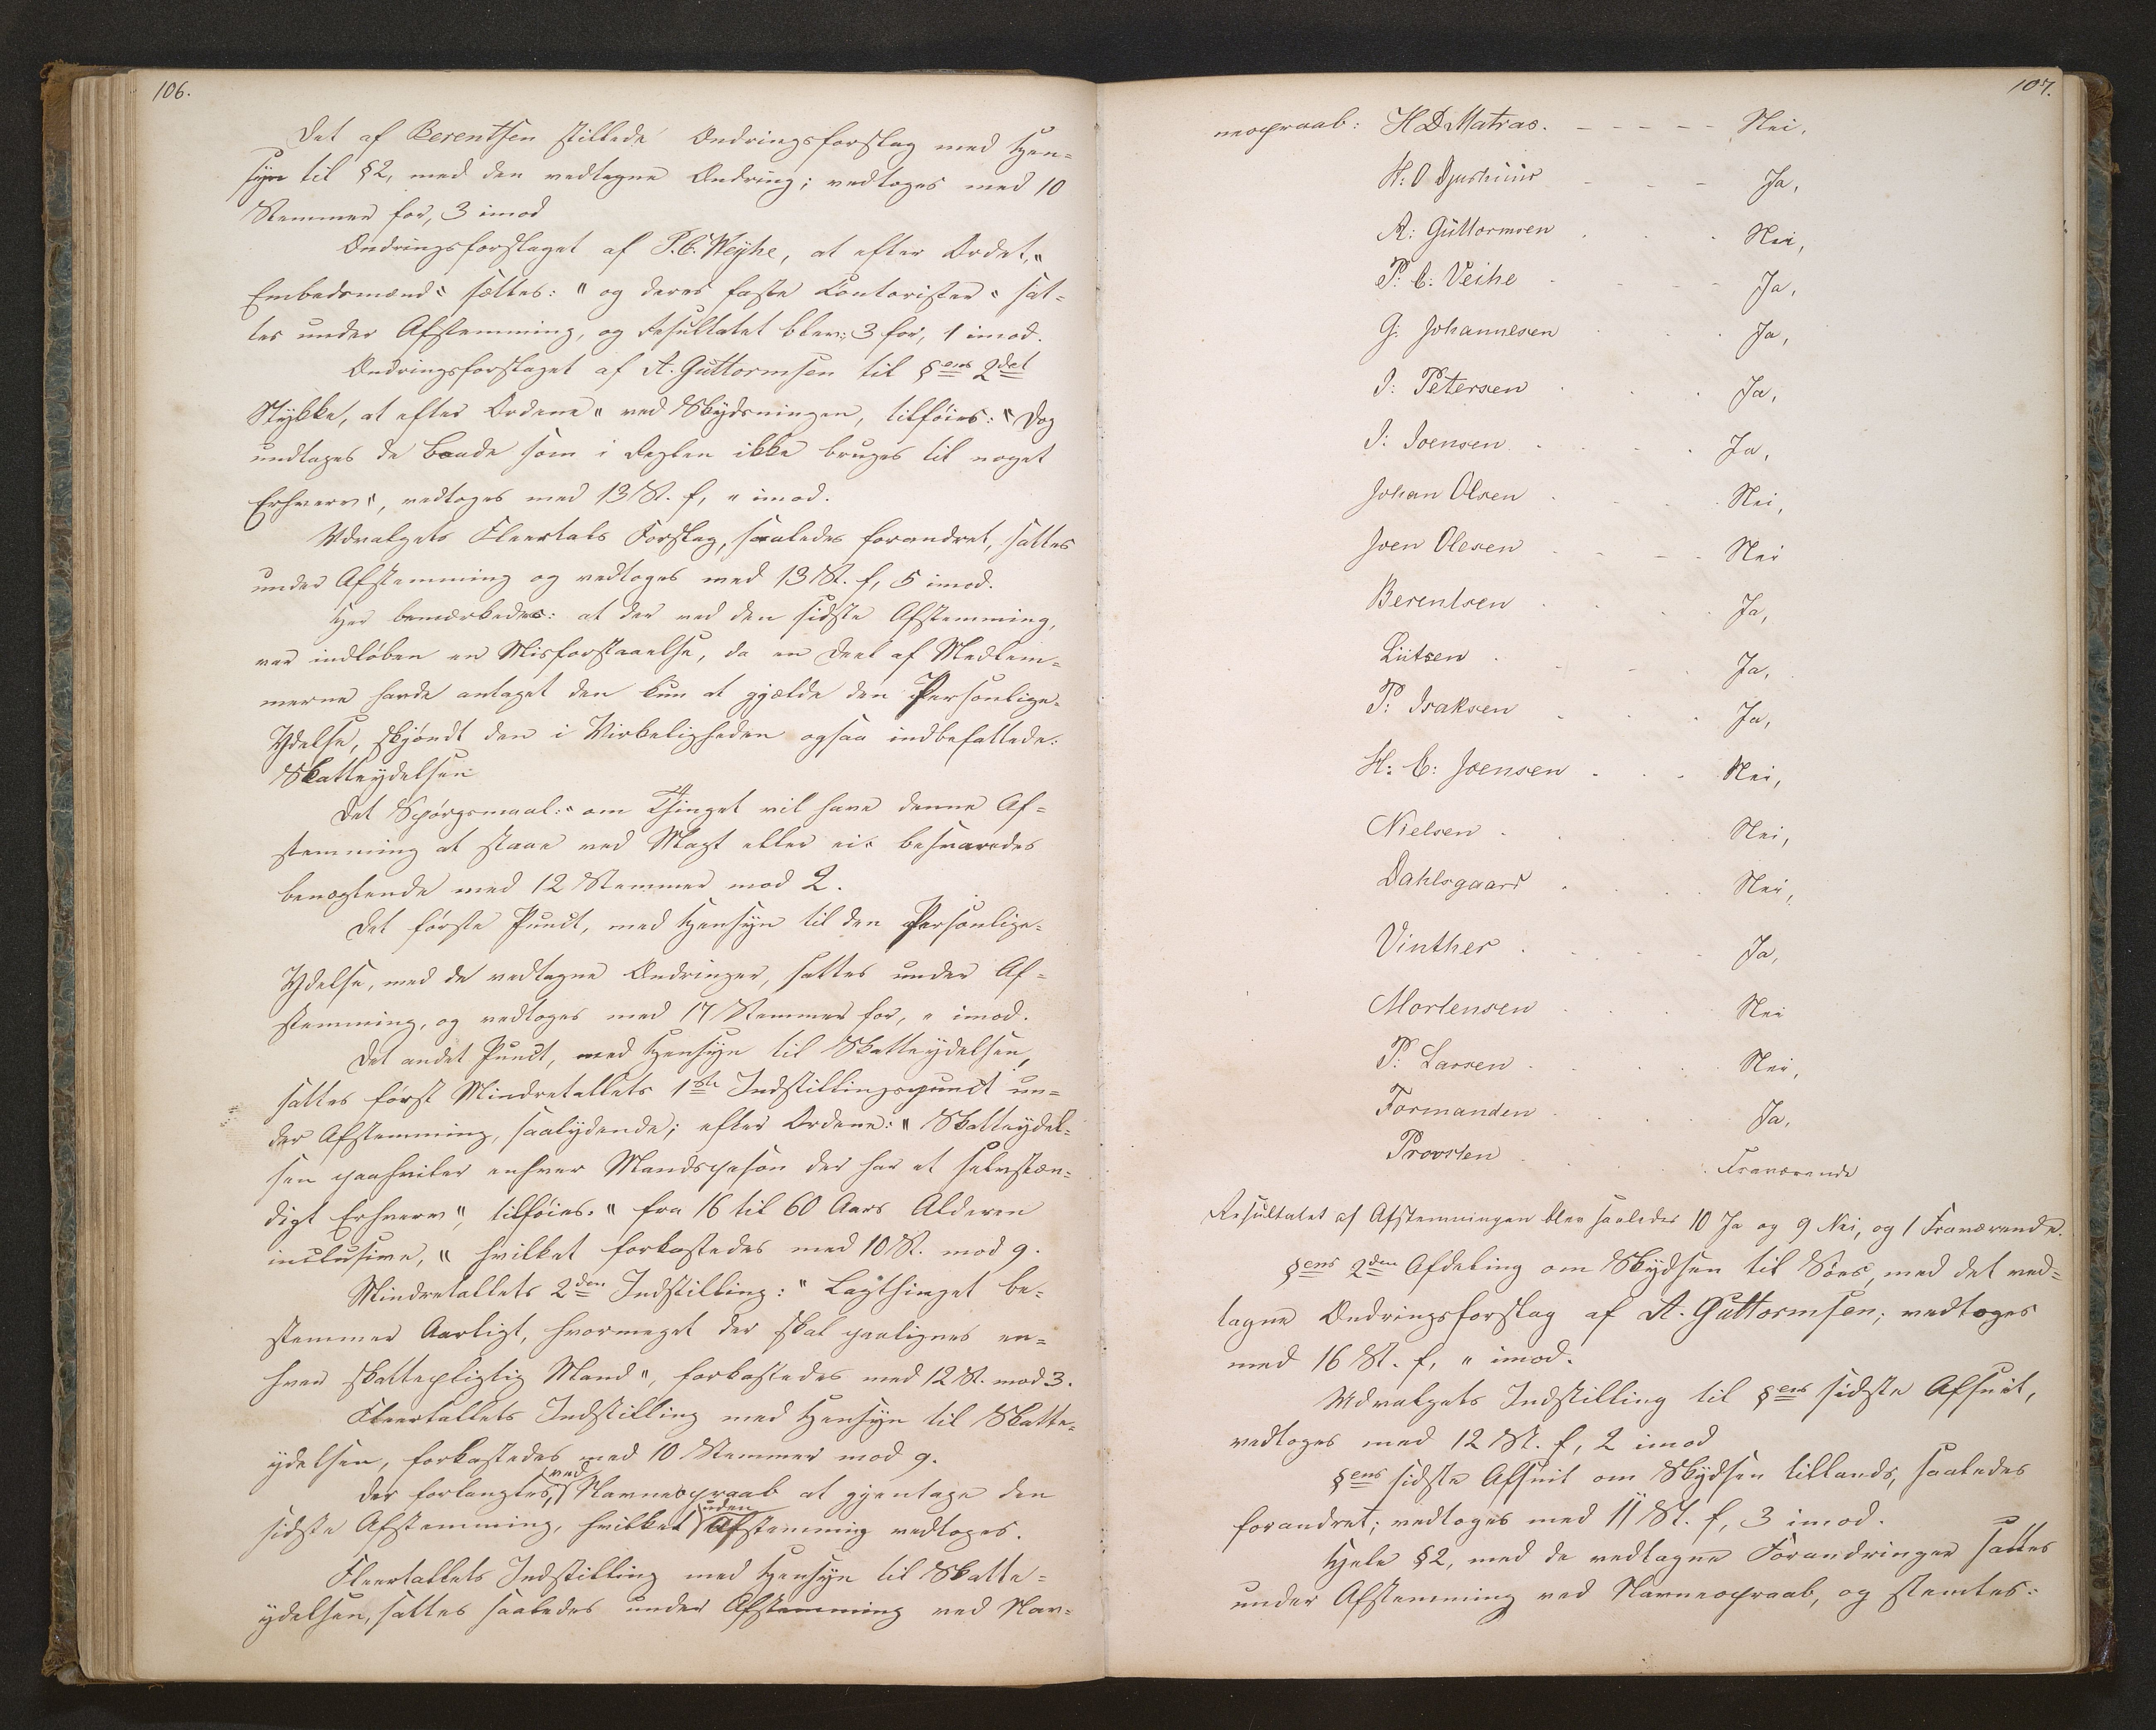 106.
Det af Berentsen stillede Ændringsforslag med Hen-
syn til §2, med den vedtagne Ændring; vedtoges med 10
Stemmer for, 3 imod
Ændringsforslaget af P.C. Weyhe, at efter Ordet "
Embedsmænd" sættes: " og deres faste Contorister " sat-
tes under Afstemming, og Resultatet blev: 3 for, 1 imod.
Ændringsforslaget af A. Guttormsen til §ens 2det
Stykke, at efter Ordene " ved Skydsningen, tilføies: " Dog
undtages de Baade som i Reglen ikke bruges til noget
Erhverv ", vedtoges med 13 St. f, " imod.
Udvalgets Fleertals Forslag, saaledes forandret, sattes
under Afstemming og vedtoges med 13 St. f, 5 imod.
Her bemærkedes: at der ved den sidste Afstemming,
var indløben en Misforstaaelse, da en Deel af Medlem-
merne havde antaget den kun at gjælde den Personlige-
Ydelse, skjøndt den i Virkeligheden ogsaa indbefattede:
Skatteydelsen
Det Spørgsmaal: " om Thinget vil have denne Af-
stemming at staae ved Magt eller ei " besvaredes
benægtende med 12 Stemmer mod 2.
Det første Punct, med Hensyn til den Personlige-
Ydelse, med de vedtagne Ændringer, sattes under Af-
stemming, og vedtoges med 17 Stemmer for, " imod.
Det andet Punct, med Hensyn til Skatteydelsen,
sattes først Mindretallets 1ste Indstillingspunct un-
der Afstemming, saalydende; efter Ordene: " Skatteydel-
sen paahviler enhver Mandsperson der har et selvstæn-
digt Erhverv ", tilføies: " fra 16 til 60 Aars Alderen
inclusive, " hvilket forkastedes med 10 St. mod 9.
Mindretallets 2den Indstilling: " Lagthinget be-
stemmer Aarligt, hvormeget der skal paalignes en-
hver skattepligtig Mand ", forkastedes med 12 St. mod 3.
Fleertallets Indstilling med Hensyn til Skatte-
ydelsen, forkastedes med 10 Stemmer mod 9.
Der forlangtes, ved Navneopraab at gjentage den
sidste Afstemming, hvilket uden Afstemming vedtoges.
Fleertallets Indstilling med Hensyn til Skatte-
ydelsen, sattes saaledes under Afstemming ved Nav-
107.
neopraab: H D Matras. - - - - - Nei,
H: O Djurhuus - - - Ja,
A: Guttormsen . . . Nei,
P: C: Veihe . - - Ja,
G: Johannesen . . . Ja,
J: Petersen . . . Ja,
J: Joensen . . . . Ja,
Johan Olsen . . . Nei,
Joen Olesen . - - - Nei
Berentsen . . . . Ja,
Lützen . . . Ja,
P: Isaksen . . . Ja,
H: C: Joensen . . . Nei,
Nielsen . . . . Nei,
Dahlsgaard . . . . Nei,
Vinther . . . . Ja,
Mortensen . . . Nei
P: Larsen . . . . Nei,
Formanden . . . Ja,
Provsten . . . . Fraværende
Resultatet af Afstemningen blev saaledes 10 Ja og 9 Nei, og 1 Fraværende.
§ens 2den Afdeling om Skydsen til Søes, med det ved-
tagne Ændringsforslag af A. Guttormsen; vedtoges
med 16 St. f, " imod.
Udvalgets Indstilling til §ens sidste Afsnit,
vedtoges med 12 St. f, 2 imod
§ens sidste Afsnit om Skydsen tillands, saaledes
forandret; vedtoges med 11 St. f, 3 imod.
Hele §2, med de vedtagne Forandringer sattes
under Afstemming ved Navneopraab, og stemtes: